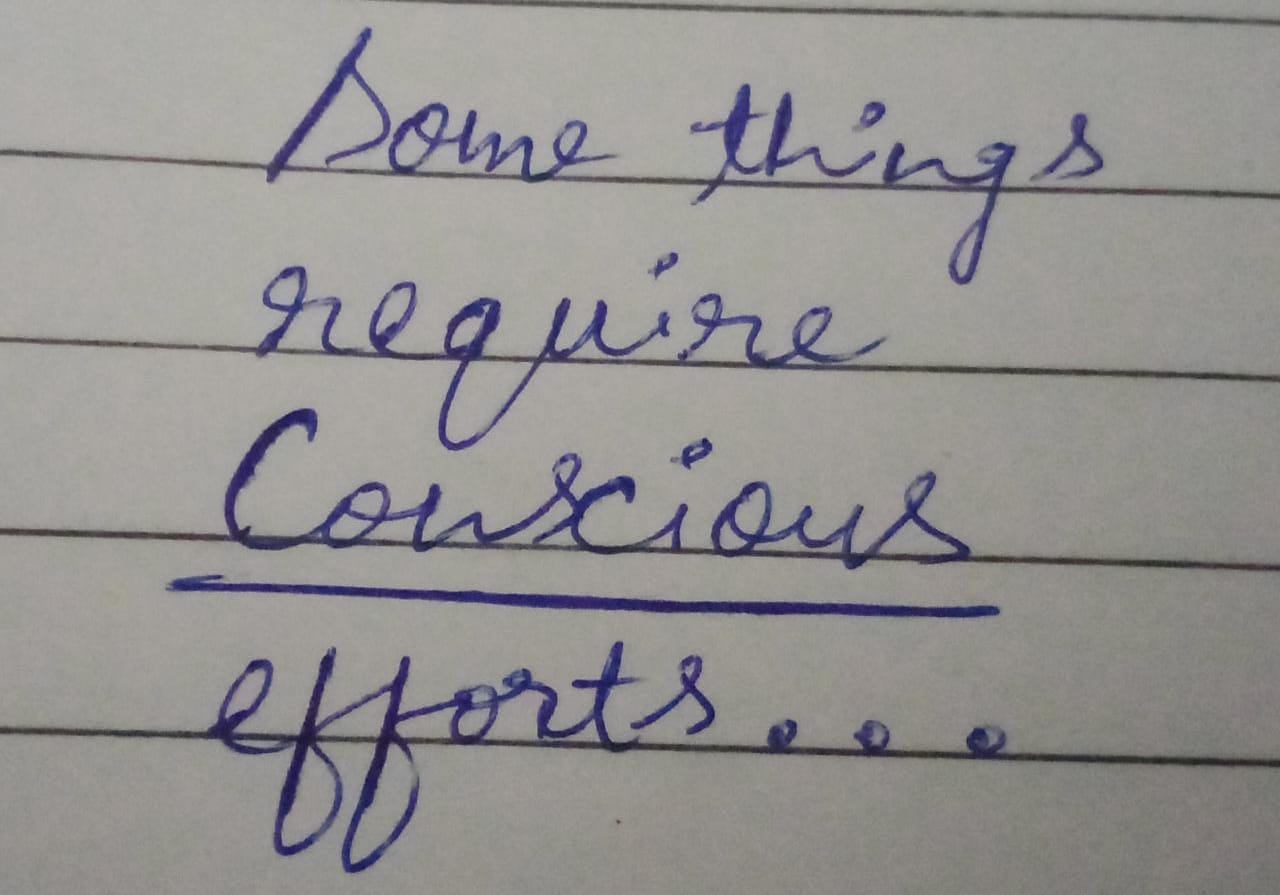 Some things
require
Conscious
efforts...